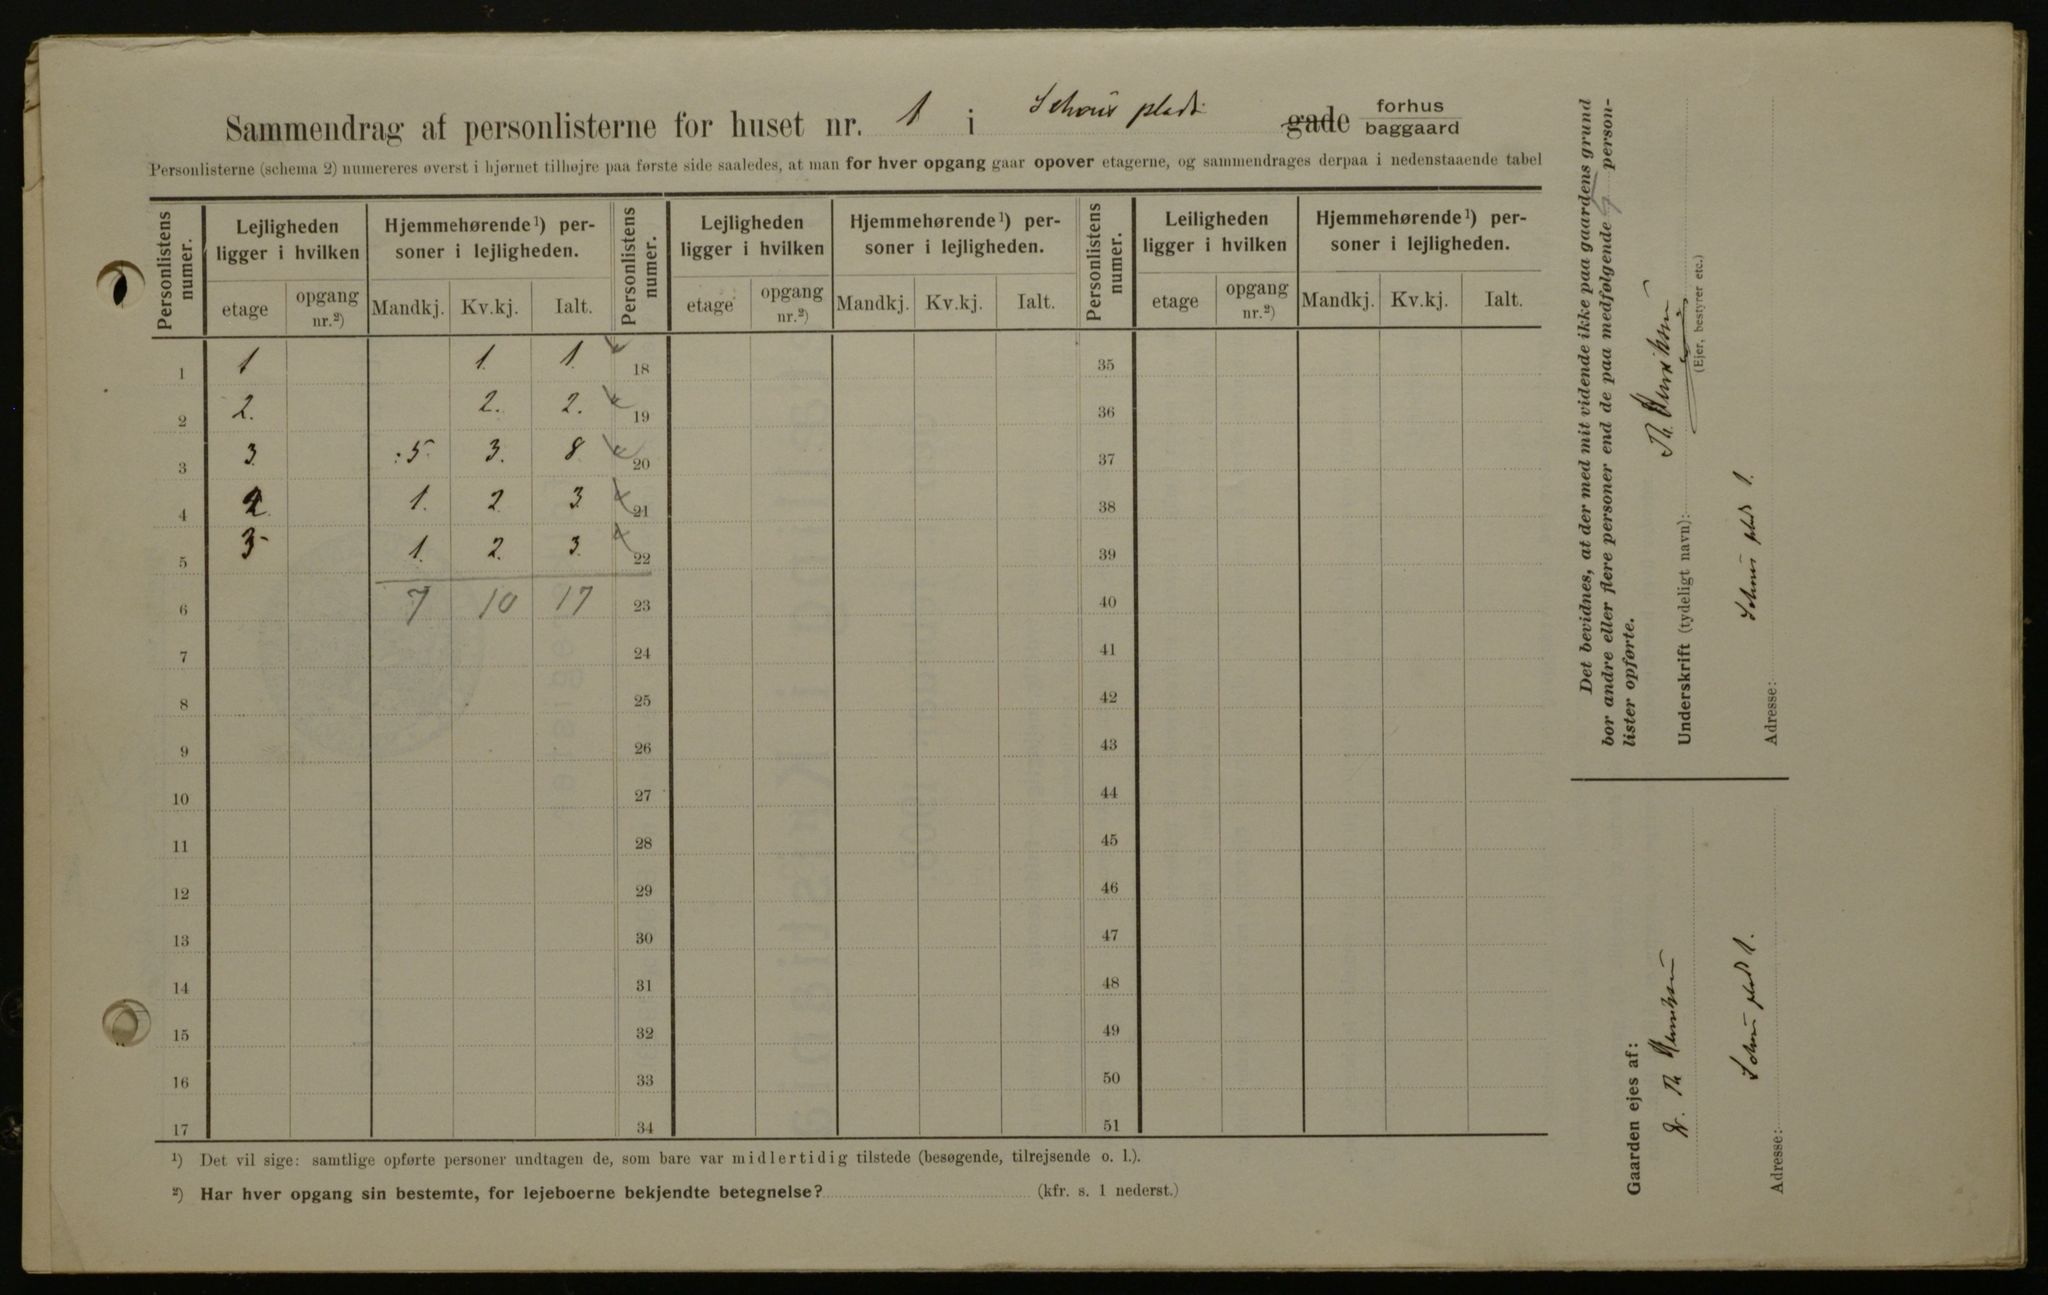 Sammendrag af personlisterne for huset nr. 1 i Schous plads gade forhus baggaard
Personlisterne (schema 2) numereres øverst i hjørnet tilhøjre paa første side saaledes, at man for hver opgang gaar opover etagerne, og sammendrages derpaa i nedenstaaende tabel
Personlistens numer. Lejligheden ligger i hvilken Hjemmehørende¹) personer i lejligheden. Personlistens numer. Lejligheden ligger i hvilken Hjemmehørende¹) personer i lejligheden. Personlistens numer. Leiligheden ligger i hvilken Hjemmehørende¹) personer i lejligheden.
etage opgang nr.²) Mandkj. Kv.kj. Ialt. etage opgang nr.²) Mandkj. Kv.kj. Ialt. etage opgang nr.²) Mandkj. Kv.kj. Ialt.
1 1 1. 1. 18 35
2 2. 2. 2. 19 36
3 3. 5. 3. 8 20 37
4 2. 1. 2 3. 21 38
5 3 1. 2. 3. 22 39
6 7 10 17 23 40
7 24 41
8 25 42
9 26 43
10 27 44
11 28 45
12 29 46
13 30 47
14 31 48
15 32 49
16 33 50
17 34 51
¹) Det vil sige: samtlige opførte personer undtagen de, som bare var midlertidig tilstede (besøgende, tilrejsende o. l.).
²) Har hver opgang sin bestemte, for lejeboerne bekjendte betegnelse? (kfr. s. 1 nederst.)
Det bevidnes, at der med mit vidende ikke paa gaardens grund
bor andre eller flere personer end de paa medfølgende person-
lister opførte.
Underskrift (tydeligt navn): Th. Henriksen
(Ejer, bestyrer etc.)
Adresse: Schous plads 1.
Gaarden ejes af:
Th Henriksen
Adresse: Schous plads 1.